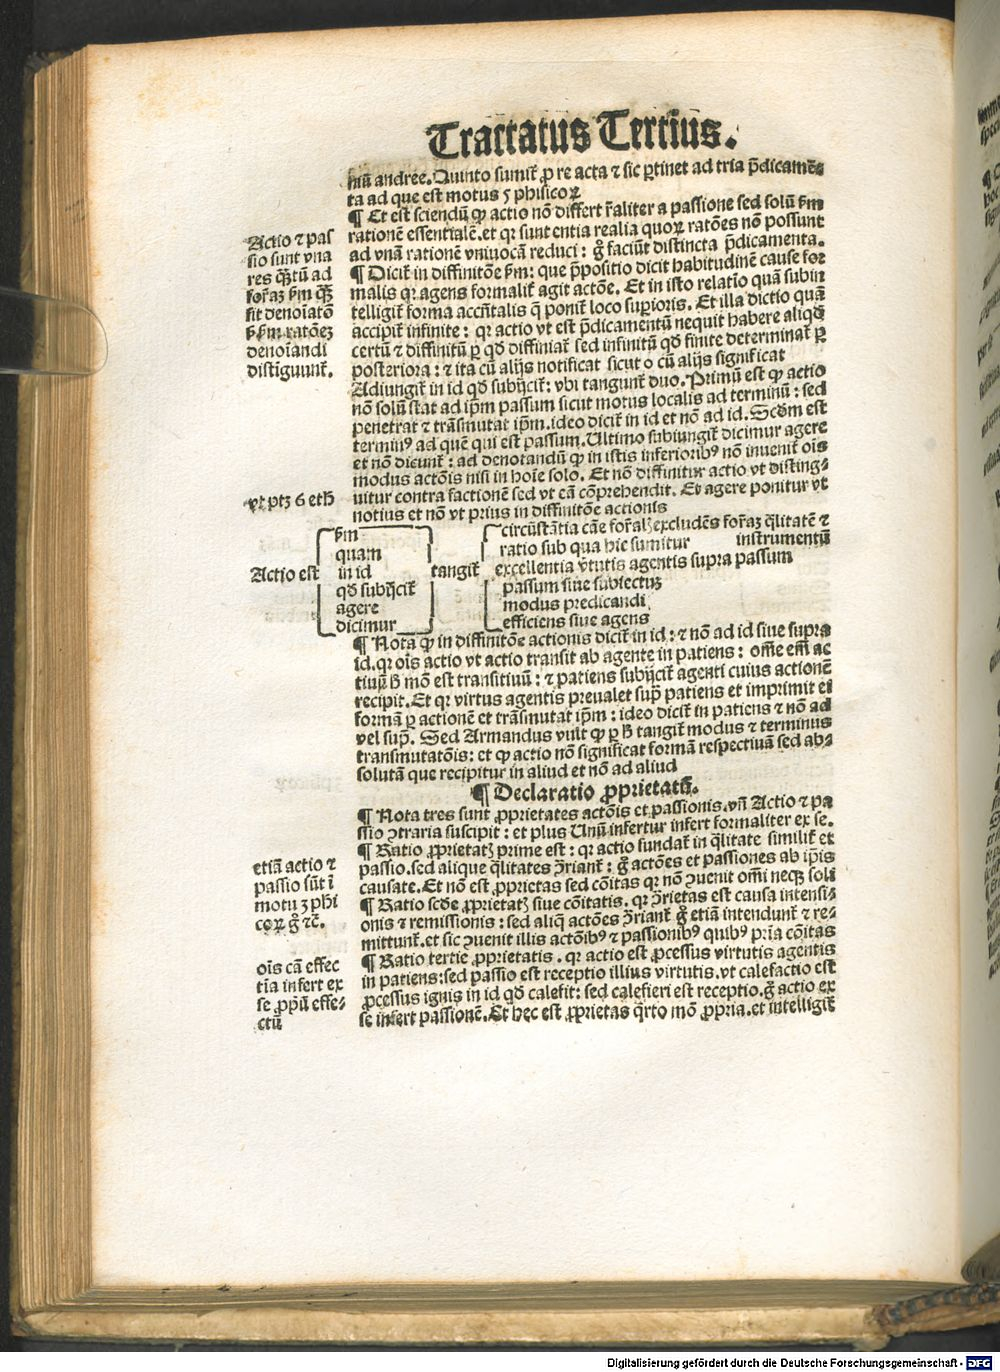 Tractatus Tertius.
mū andree. Quinto sumit᷑ ꝓ re acta ⁊ sic ꝑtinet ad tria p̄dicamē-
ta ad que est motus 5 phisicoꝝ
¶ Et est sciendū ꝙ actio nō differt r̄aliter a passione sed solū ẜm
rationē essentialē. et qꝛ sunt entia realia quoꝝ ratōes nō possunt
ad vnā rationē vniuocā reduci : g̊ faciūt distincta p̄dicamenta.
¶ Dicit᷑ in diffinitōe ẜm: que p̄positio dicit habitudinē cause for
malis qꝛ agens formalit᷑ agit actōe. Et in isto relatīo quā subin
telligit᷑ forma accn̄talis q̄ ponit᷑ loco suꝑioris. Et illa dictio quā
accipit᷑ infinite : qꝛ actio vt est p̄dicamentū nequit habere aliqd̓
certū ⁊ diffinitū ꝑ qd̓ diffiniat᷑ sed infinitū qd̓ finite determinat᷑ ꝑ
posteriora : ⁊ ita cū alijs notificat sicut o cū alijs significat
Adiungit᷑ in id qd̓ subijcit᷑: vbi tangunt᷑ duo. Primū est ꝙ actio
nō solū stat ad ip̄m passum sicut motus localis ad terminū : sed
penetrat ⁊ trāsmutat ip̄m. ideo dicit᷑ in id et nō ad id. Scd̓m est
terminꝰ ad quē qui est passum. Ultimo subiungit᷑ dicimur agere
et nō dicunt᷑ : ad denotandū ꝙ in istis inferioribꝰ nō inuenit᷑ oīs
modus actōis nisi in hoīe solo. Et nō diffinitur actio vt disting-
uitur contra factionē sed vt eā cōprehendit. Et agere ponitur vt
notius et nō vt prius in diffinitōe actionis
Actio ⁊ pas
sio sunt vna
res qꝫtū ad
for̄aꝫ ẜm qꝫ
fit denoīatō
ẜꝫ ẜm ratōeꝫ
denoīandi
distīguunt᷑.
vt ptꝫ 6 eth̓
Actio est
ẜm
quam
in id
qd̓ subijcit᷑
agere
dicimur
tangit᷑
circūstātia cāe for̄al̓ excludēs for̄aꝫ q̄litatē ⁊
ratio sub qua hic sumitur instrumentū
excellentia v̓tutis agentis supra passum
passum siue subiectuꝫ
modus predicandi
efficiens siue agens
¶ Nota ꝙ in diffinitōe actionis dicit᷑ in id : ⁊ nō ad id siue supra
id. qꝛ oīs actio vt actio transit ab agente in patiens : om̄e em̄ ac
tiuꝝ h̓ mō est transitiuū : ⁊ patiens subijcit᷑ agenti cuius actionē
recipit. Et qꝛ virtus agentis preualet suꝑ patiens et imprimit ei
formā ꝑ actionē et trāsmutat ip̄m : ideo dicit᷑ in patiens ⁊ nō ad
vel suꝑ. Sed Armandus vult ꝙ ꝑ h̓ tangit᷑ modus ⁊ terminus
transmutatōis: et ꝙ actio nō significat formā respectiuā sed ab-
solutā que recipitur in aliud et nō ad aliud
¶ Declaratio ꝓprietatū.
¶ Nota tres sunt ꝓprietates actōis et passionis. vn̄ Actio ⁊ pa
ssio ꝯtraria suscipit : et plus Unū infertur infert formaliter ex se.
¶ Ratio ꝓprietatꝭ prime est : qꝛ actio fundat᷑ in q̄litate similit᷑ et
passio. sed alique q̄litates ꝯ̄riant᷑ : g̊ actōes et passiones ab ip̄is
causate. Et nō est ꝓprietas sed cōitas qꝛ nō ꝯuenit om̄i neqꝫ soli
¶ Ratio scd̓e ꝓprietatꝭ siue cōitatis. qꝛ ꝯ̄rietas est causa intensi-
onis ⁊ remissionis : sed aliq̄ actōes ꝯ̄riant᷑ g̊ etiā intendunt᷑ ⁊ re-
mittunt᷑. et sic ꝯuenit illis actōibꝰ ⁊ passionibꝰ quibꝰ prīa cōitas
¶ Ratio tertie ꝓprietatis . qꝛ actio est ꝓcessus virtutis agentis
in patiens: sed passio est receptio illius virtutis. vt calefactio est
ꝓcessus ignis in id qd̓ calefit: sed calefieri est receptio. g̊ actio ex
se infert passionē. Et hec est ꝓprietas q̄rto mō ꝓpria. et intelligit᷑
etiā actio ⁊
passio sūt ī
motu 3 phi
coꝝ g̊ ⁊c̄.
oīs cā effec
tīa infert ex
se ꝓpriū effe-
ctū
Digitalisierung gefördert durch die Deutsche Forschungsgemeinschaft - DFG